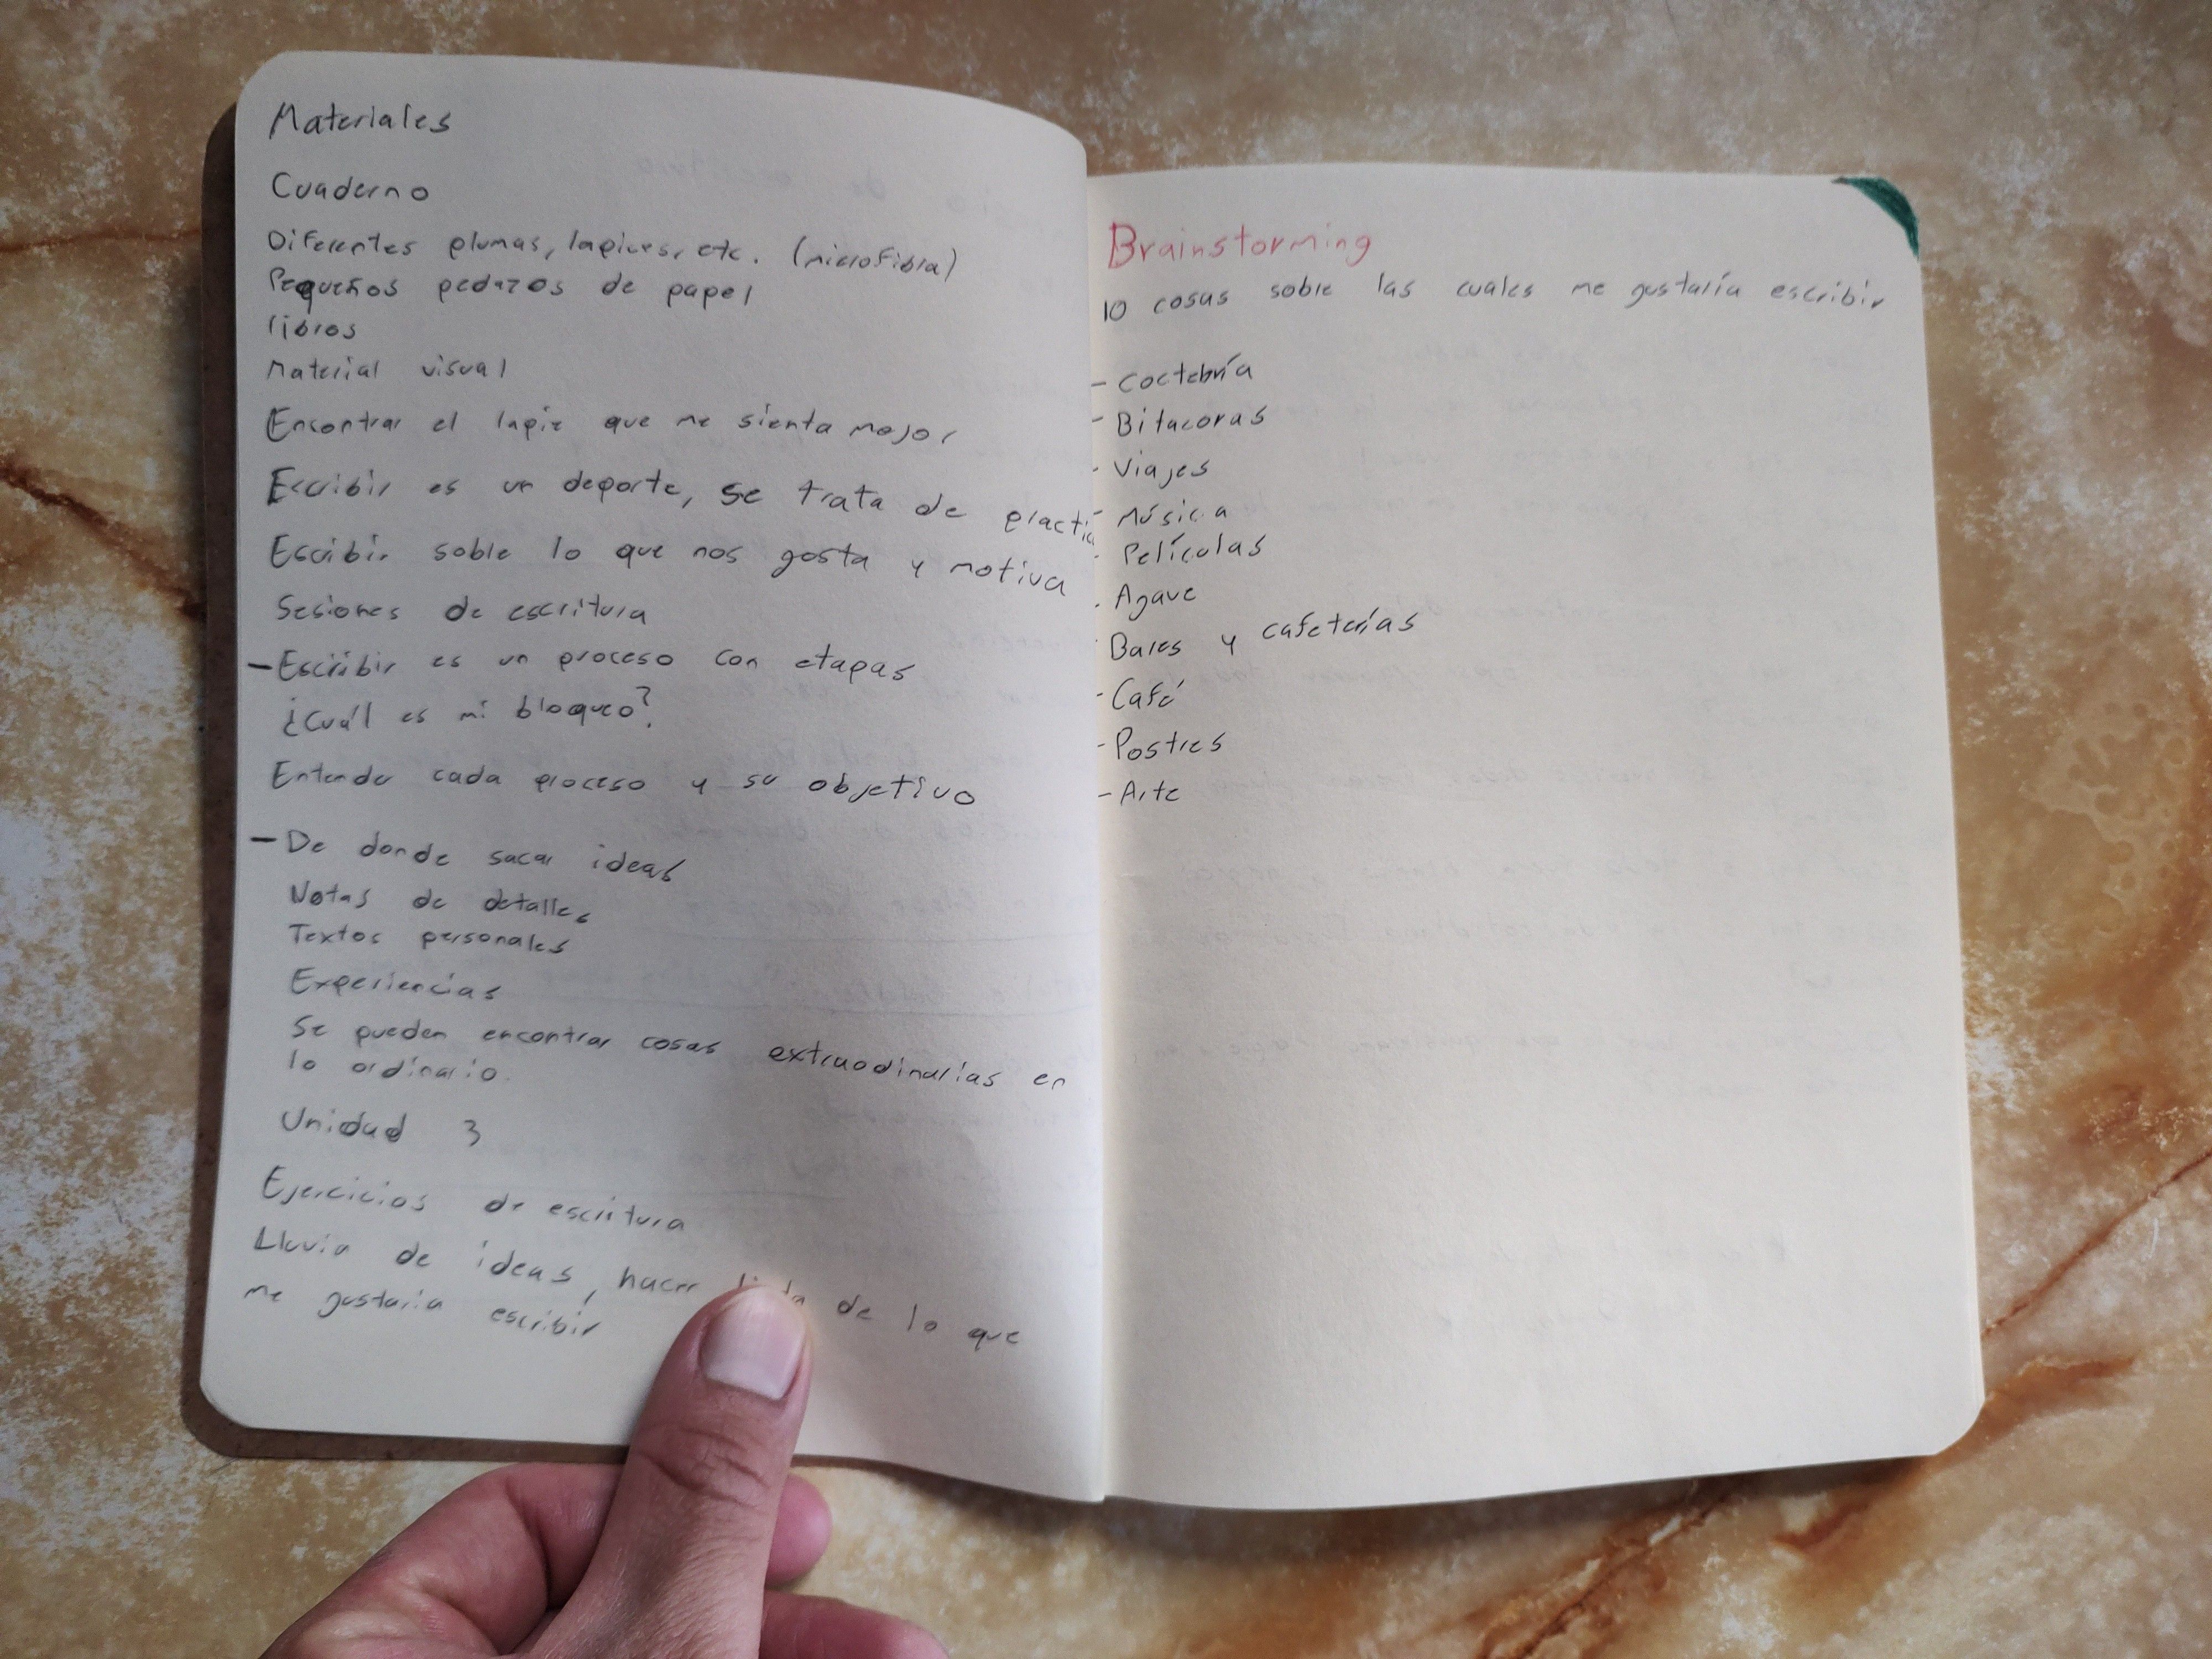 Materiales
Cuaderno
Diferentes plumas, lapices, etc. (microfibra)
Pequeños pedazos de papel
libros
Material visual
Encontrar el lapiz que me sienta mejor
Escribir es un deporte, se trata de practic
Escribir sobre lo que nos gusta y motiva
Sesiones de escritura
- Escribir es un proceso con etapas
¿Cuál es mi bloqueo?
Entender cada proceso y su objetivo
- De donde sacar ideas
Notas de detalles
Textos personales
Experiencias
Se pueden encontrar cosas extraodinarias en
lo ordinario.
Unidad 3
Ejercicios de escritura
Lluvia de ideas, hacer lista de lo que
me gustaria escribir
Brainstorming
10 cosas sobre las cuales me gustaría escribir
- Coctelería
- Bitacoras
- Viajes
- Música
- Películas
- Agave
- Bares y cafeterías
- Café
- Postres
- Arte